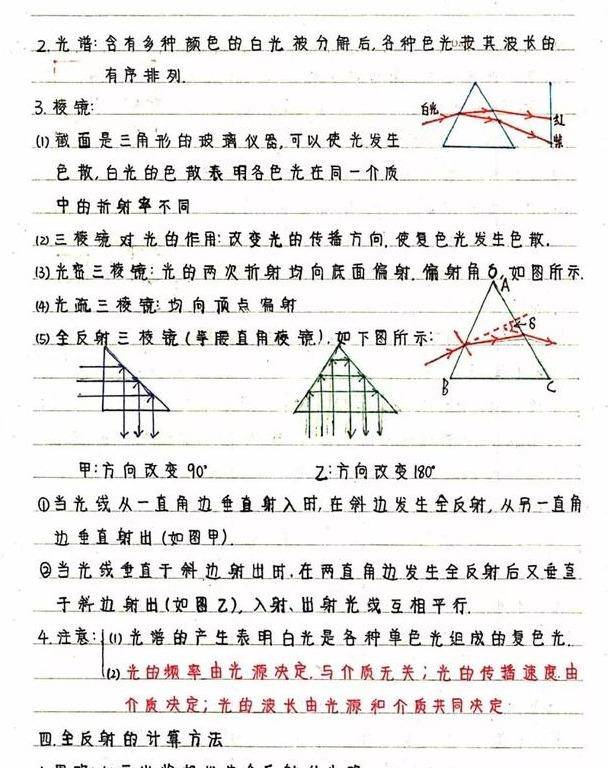 2.光谱:含有多种颜色的白光被分解后,各种色光按其波长的
有序排列.
3.棱镜:
白光
红
紫
(1)截面是三角形的玻璃仪器,可以使光发生
色散,白光的色散表明各色光在同一介质
中的折射率不同
(2)三棱镜对光的作用:改变光的传播方向,使复色光发生色散.
(3)光密三棱镜:光的两次折射均向底面偏射,偏射角δ,如图所示.
(4)光疏三棱镜:均向顶点偏射
(5)全反射三棱镜(等腰直角棱镜),如下图所示:
A
δ
B
C
甲:方向改变90°
乙:方向改变180°
①当光线从一直角边垂直射入时,在斜边发生全反射,从另一直角
边垂直射出(如图甲).
②当光线垂直于斜边射出时,在两直角边发生全反射后又垂直
于斜边射出(如图乙),入射、出射光线互相平行.
4.注意:(1)光谱的产生表明白光是各种单色光组成的复色光.
(2)光的频率由光源决定,与介质无关;光的传播速度由
介质决定;光的波长由光源和介质共同决定
四.全反射的计算方法